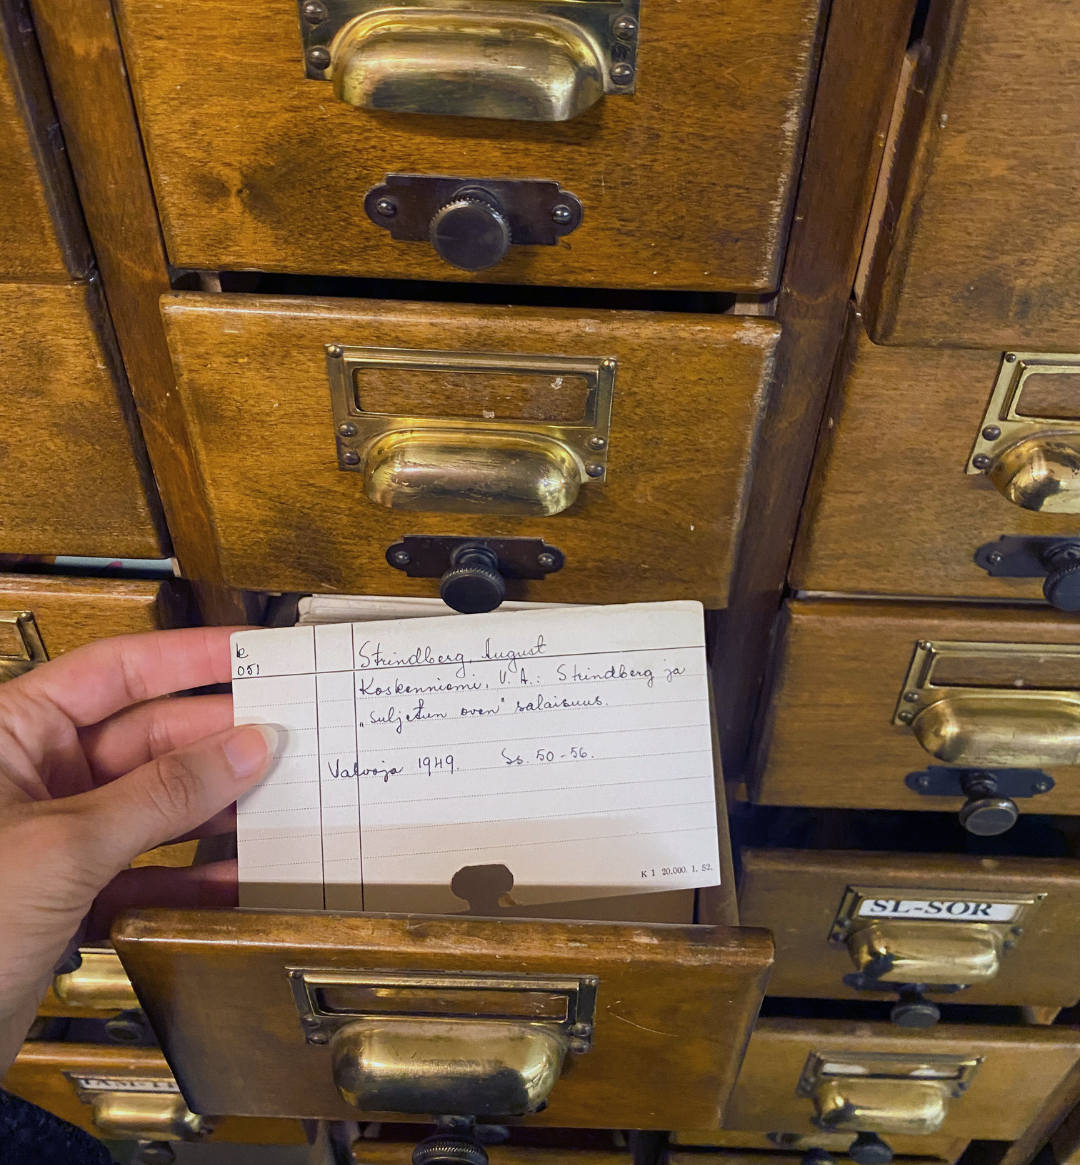 k
051
Strindberg, August
Koskenniemi, V. A.: Strindberg ja
„suljetun oven" salaisuus.
Valvoja 1949. Ss. 50-56.
K 1 20.000. 1. 52.
SL-SOR